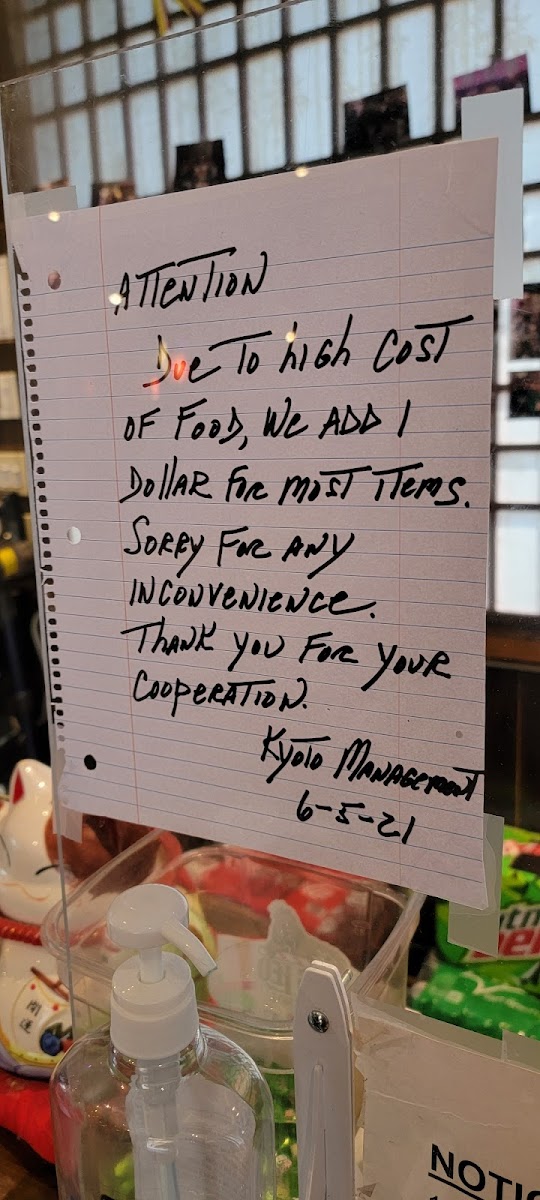 ATTENTION
Due To high COST
OF FOOD, We ADD 1
DollAR FOR MOST ITEMS.
SORRY FOR ANY
INCONVENIENCE.
THANK YOU FOR YOUR
COOPERATION.
KYOTO MANAGEMENT
6-5-21
開運
NOTI